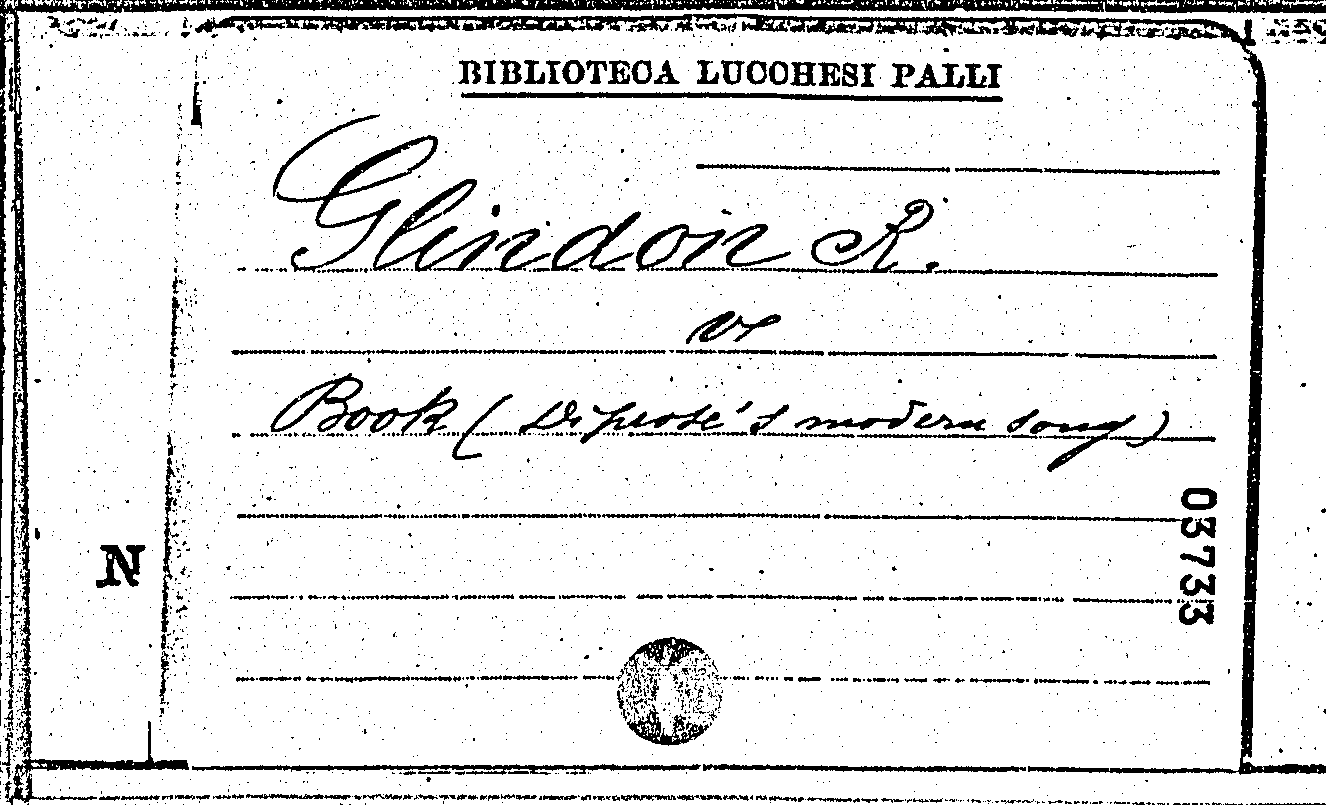 BIBLIOTECA LUCCHESI PALLI
Glindon R.
v
Book ( Diprose's modern song )
03733
N